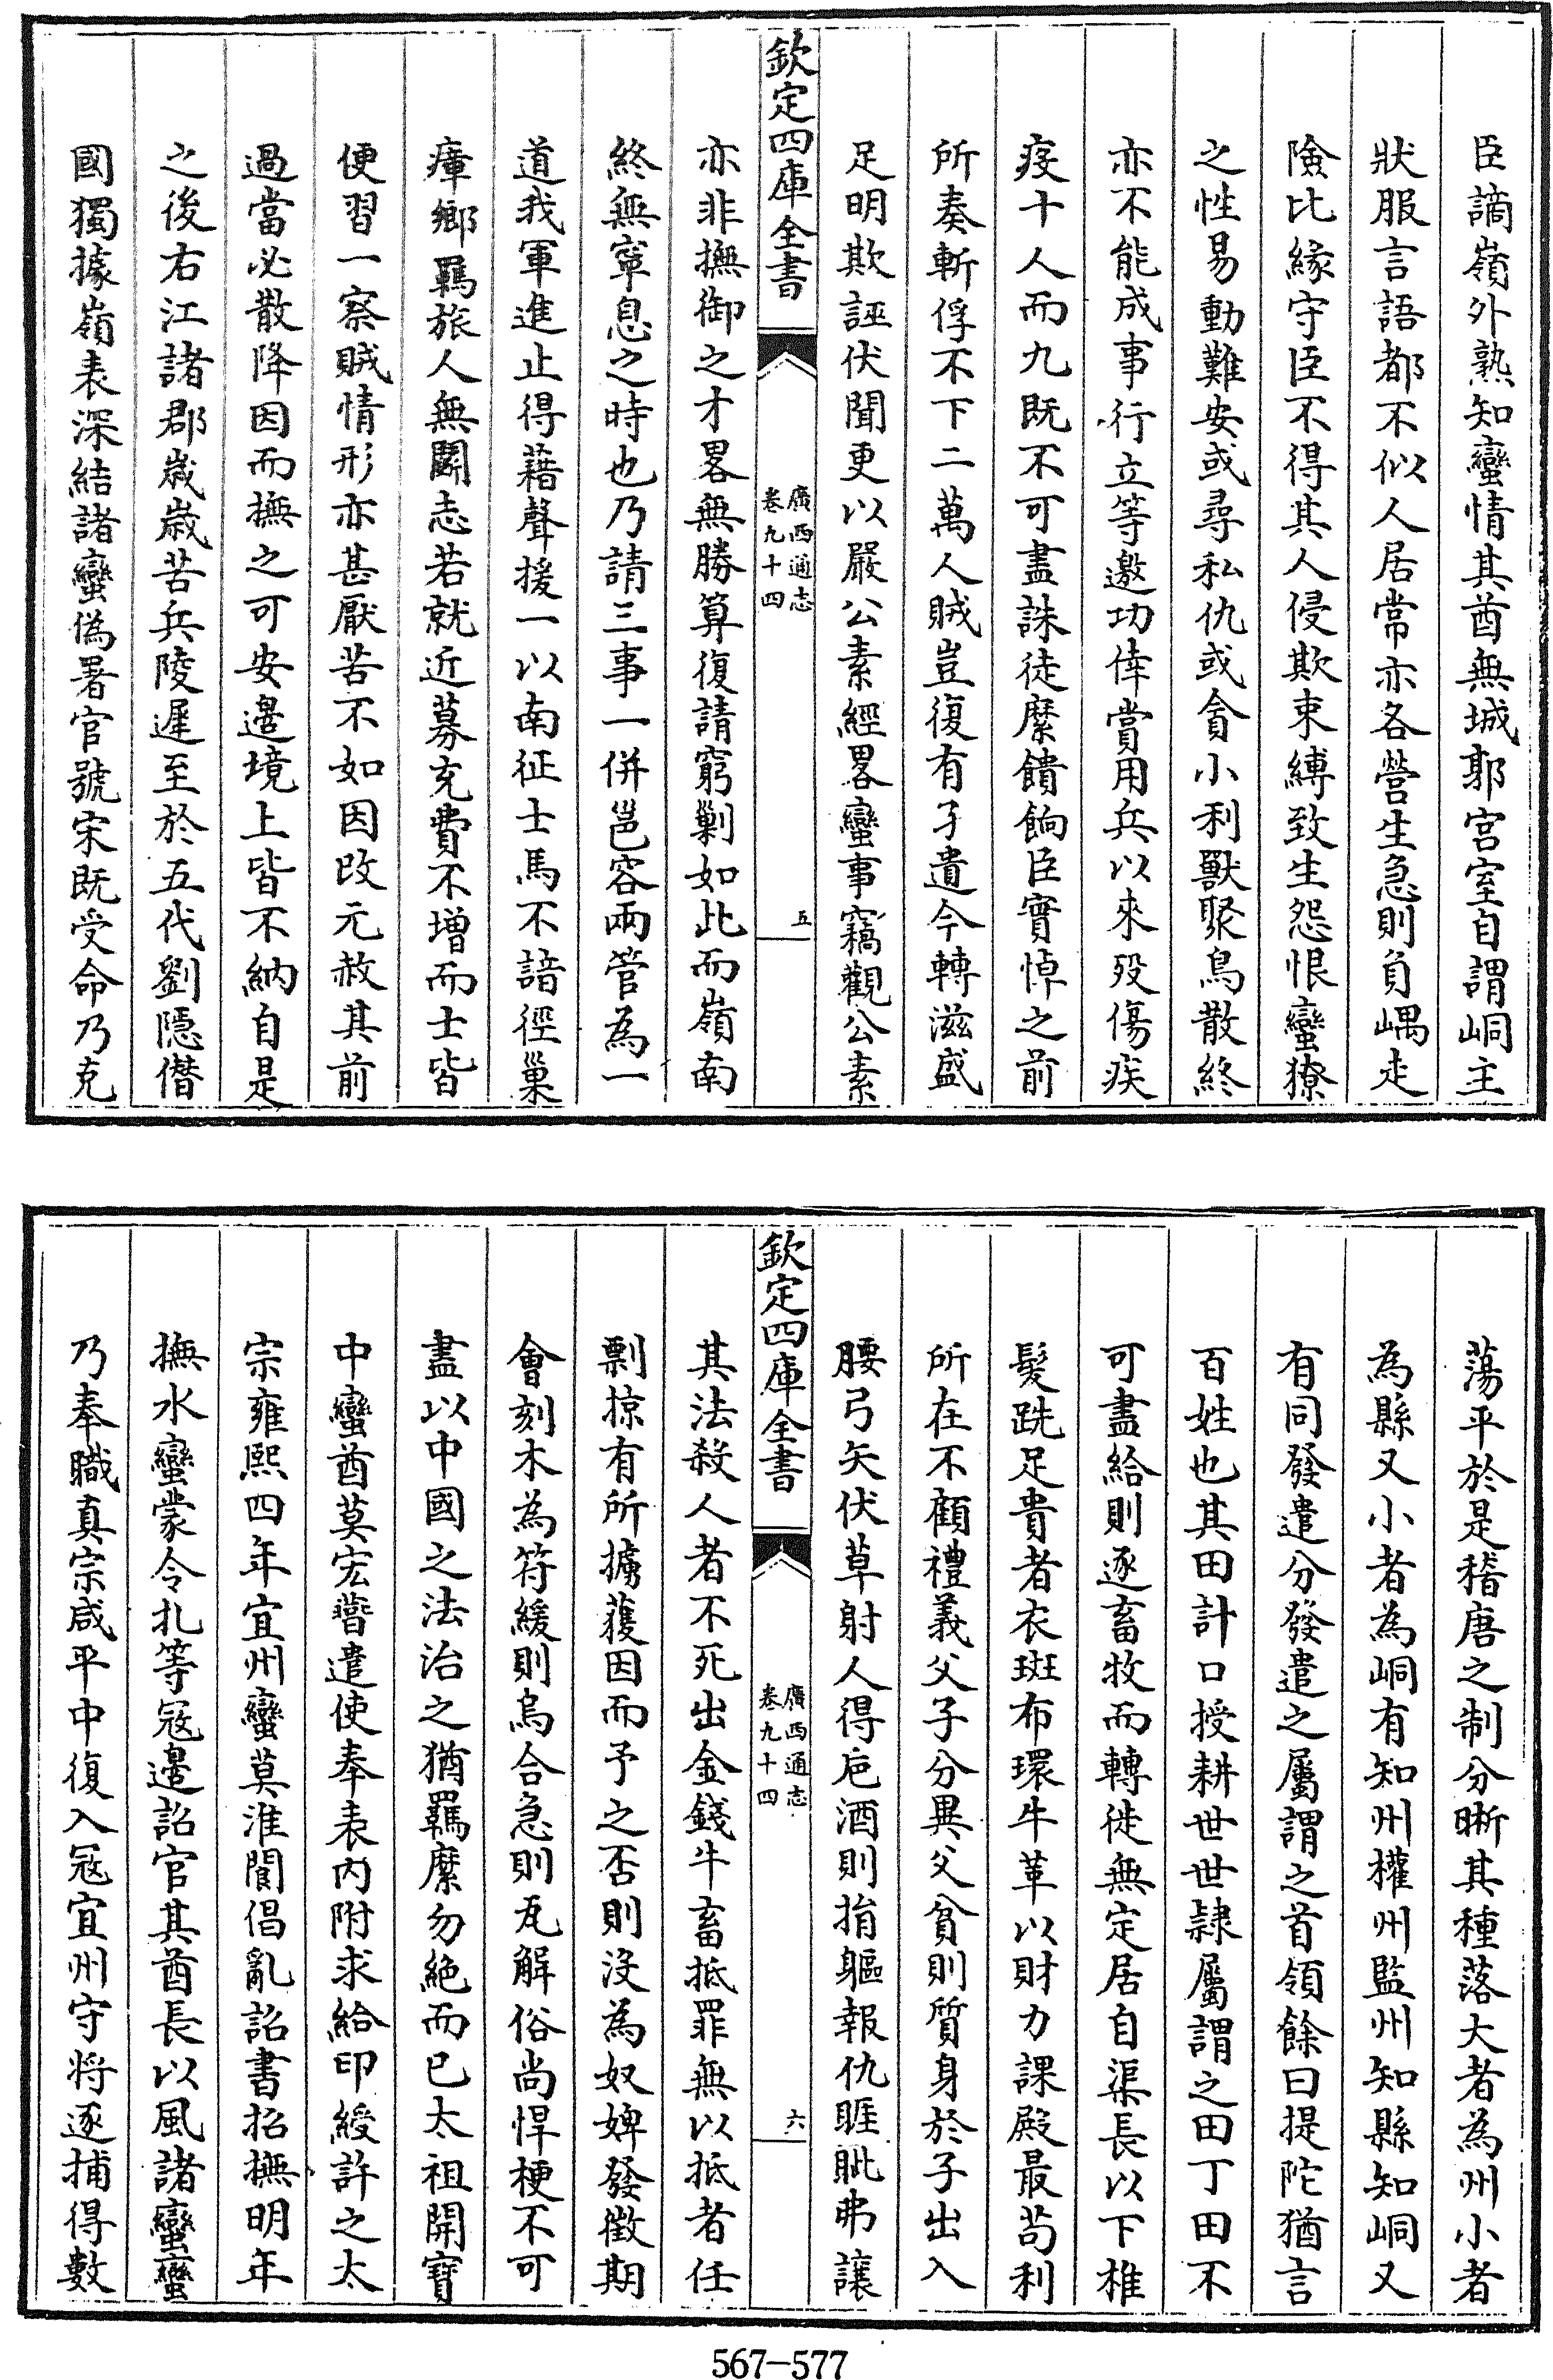 臣謫嶺外熟知蠻情其酋無城郭宮室自謂峒主
狀服言語都不似人居常亦各營生急則負嵎走
險比緣守臣不得其人侵欺束縛致生怨恨蠻獠
之性易動難安或尋私仇或貪小利獸聚鳥散終
亦不能成事行立等邀功倖賞用兵以來殁傷疾
疫十人而九既不可盡誅徒縻饋餉臣實悼之前
所奏斬俘不下二萬人賊豈復有孑遺今轉滋盛
足明欺誣伏聞更以嚴公素經畧蠻事竊觀公素
欽定四庫全書
廣西通志
卷九十四
五
亦非撫御之才畧無勝算復請窮剿如此而嶺南
終無寧息之時也乃請三事一併邕容兩管為一
道我軍進止得藉聲援一以南征士馬不諳徑巢
瘴鄉羈旅人無鬬志若就近募充費不增而士皆
便習一察賊情形亦甚厭苦不如因改元赦其前
過當必散降因而撫之可安邊境上皆不納自是
之後右江諸郡嵗嵗苦兵陵遲至於五代劉隱僭
國獨據嶺表深結諸蠻偽署官號宋既受命乃克
蕩平於是稽唐之制分晰其種落大者為州小者
為縣又小者為峒有知州權州監州知縣知峒又
有同發遣分發遣之屬謂之首領餘曰提陀猶言
百姓也其田計口授耕世世隷屬謂之田丁田不
可盡給則逐畜牧而轉徙無定居自渠長以下椎
髮跣足貴者衣斑布環牛革以財力課殿最茍利
所在不顧禮義父子分異父貧則質身於子出入
腰弓矢伏草射人得巵酒則捐軀報仇睚眦弗讓
欽定四庫全書
廣西通志
卷九十四
六
其法殺人者不死出金錢牛畜抵罪無以抵者任
剽掠有所擄獲因而予之否則沒為奴婢發徵期
會刻木為符緩則烏合急則瓦解俗尚悍梗不可
盡以中國之法治之猶羈縻勿絶而已太祖開寶
中蠻酋莫宏㬱遣使奉表內附求給印綬許之太
宗雍熙四年宜州蠻莫淮閬倡亂詔書招撫明年
撫水蠻蒙令扎等冦邊詔官其酋長以風諸蠻蠻
乃奉職真宗咸平中復入冦宜州守將逐捕得數
567—577